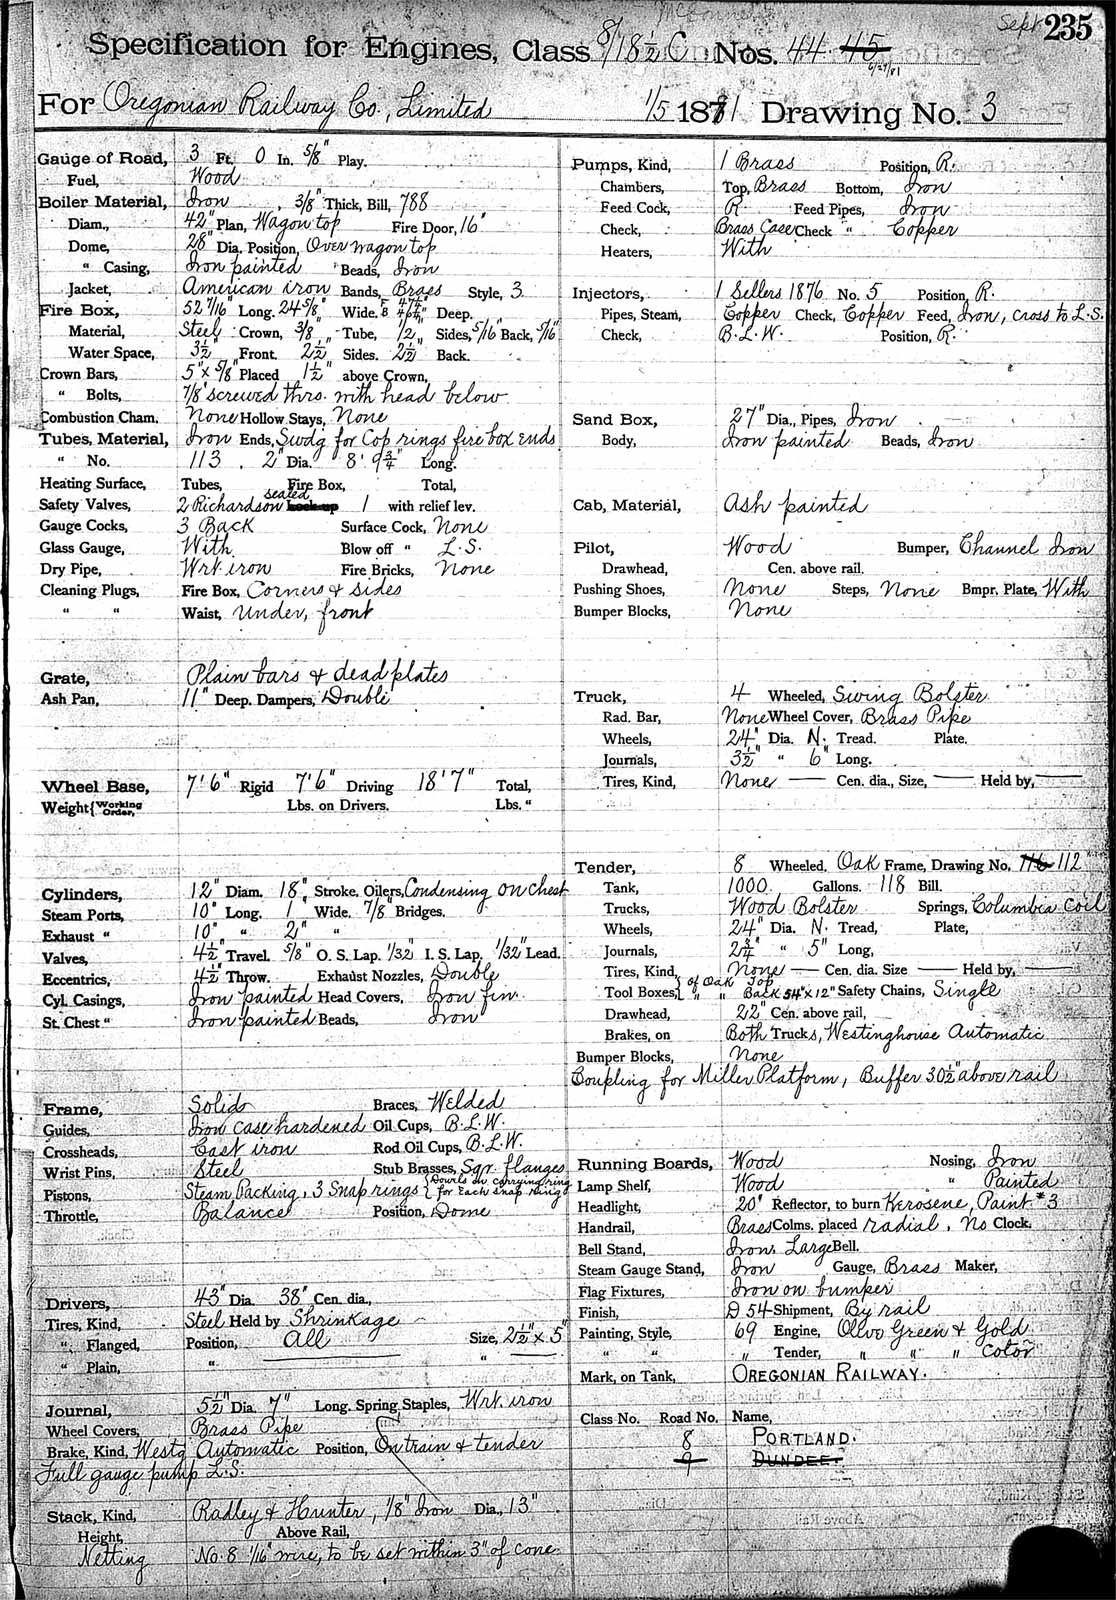 Sept. 235
Specification for Engines, Class 8/18 1/2 C. Nos. 44 45
6/29/81
For Oregonian Railway Co., Limited 1/5 1881 Drawing No. 3
Gauge of Road, 3 Ft. 0 In. 5/8" Play.
Fuel, Wood
Boiler Material, Iron, 3/8" Thick, Bill, 788
Diam., 42" Plan, Wagon top Fire Door, 16"
Dome, 28" Dia. Position, Over wagon top
" Casing, Iron painted Beads, Iron
Jacket, American iron Bands, Brass Style, 3
Fire Box, 52 7/16" Long. 24 5/8" Wide. F 47 1/4" B 46 1/4" Deep.
Material, Steel Crown, 3/8" Tube, 1/2" Sides, 5/16" Back, 5/16"
Water Space, 3 1/2" Front. 2 1/2" Sides. 2 1/2" Back.
Crown Bars, 5" x 5/8" Placed 1 1/2" above Crown,
" Bolts, 7/8" screwed thro. with head below
Combustion Cham. None Hollow Stays, None
Tubes, Material, Iron Ends, Swdg for Cop rings fire box ends
" No. 113. 2" Dia. 8' 9 3/4" Long.
Heating Surface, Tubes, Fire Box, Total,
Safety Valves, 2 Richardson sealed Lock-up 1 with relief lev.
Gauge Cocks, 3 Back Surface Cock, None
Glass Gauge, With Blow off " L.S.
Dry Pipe, Wrt iron Fire Bricks, None
Cleaning Plugs, Fire Box, Corners & sides
" " Waist, Under, front
Grate, Plain bars & dead plates
Ash Pan, 11" Deep. Dampers, Double
Wheel Base, 7' 6" Rigid 7' 6" Driving 18' 7" Total,
Weight { Working Order, Lbs. on Drivers. Lbs. "
Cylinders, 12" Diam. 18" Stroke. Oilers, Condensing on chest
Steam Ports, 10" Long. 1" Wide. 7/8" Bridges.
Exhaust " 10" " 2" "
Valves, 4 1/2" Travel. 5/8" O. S. Lap. 1/32" I. S. Lap. 1/32" Lead.
Eccentrics, 4 1/2" Throw. Exhaust Nozzles, Double
Cyl. Casings, Iron painted Head Covers, Iron fin.
St. Chest " Iron painted Beads, Iron
Frame, Solid Braces, Welded
Guides, Iron case hardened Oil Cups, B.L.W.
Crossheads, Cast iron Rod Oil Cups, B.L.W.
Wrist Pins, Steel Stub Brasses, Sqr. flanges
Pistons, Steam Packing, 3 Snap rings { Dowels on carrying ring for each snap ring
Throttle, Balance Position, Dome
Drivers, 43" Dia. 38" Cen. dia.,
Tires, Kind, Steel Held by Shrinkage
" Flanged, Position, All Size, 2 1/2" x 5"
" Plain, " "
Journal, 5 1/2" Dia. 7" Long. Spring Staples, Wrt. iron
Wheel Covers, Brass Pipe
Brake, Kind, Westg Automatic Position, On train & tender
Full gauge pump L.S.
Stack, Kind, Radley & Hunter, 1/8" Iron Dia., 13"
Height, Above Rail,
Netting No. 8 1/16" wire, to be set within 3" of cone
Pumps, Kind, 1 Brass Position, R.
Chambers, Top, Brass Bottom, Iron
Feed Cock, R. Feed Pipes, Iron
Check, Brass Case Check " Copper
Heaters, With
Injectors, 1 Sellers 1876 No. 5 Position, R.
Pipes, Steam, Copper Check, Copper Feed, Iron, cross to L.S.
Check, B.L.W. Position, R.
Sand Box, 27" Dia., Pipes, Iron
Body, Iron painted Beads, Iron
Cab, Material, Ash painted
Pilot, Wood Bumper, Channel Iron
Drawhead, Cen. above rail.
Pushing Shoes, None Steps, None Bmpr. Plate, With
Bumper Blocks, None
Truck, 4 Wheeled, Swing Bolster
Rad. Bar, None Wheel Cover, Brass Pipe
Wheels, 24" Dia. N. Tread. Plate.
Journals, 3 1/2" " 6" Long.
Tires, Kind, None — Cen. dia., Size, — Held by, —
Tender, 8 Wheeled. Oak Frame, Drawing No. 116 112"
Tank, 1000. Gallons. 118 Bill.
Trucks, Wood Bolster Springs, Columbia coil
Wheels, 24" Dia. N. Tread, Plate,
Journals, 2 3/4" " 5" Long,
Tires, Kind, None — Cen. dia. Size — Held by, —
Tool Boxes, { of Oak Top " " Back 54" x 12" Safety Chains, Single
Drawhead, 22" Cen. above rail,
Brakes, on Both Trucks, Westinghouse Automatic
Bumper Blocks, None
Coupling for Miller Platform, Buffer 30 1/2" above rail
Running Boards, Wood Nosing, Iron
Lamp Shelf, Wood " Painted
Headlight, 20" Reflector, to burn Kerosene, Paint #3
Handrail, Brass Colms. placed radial. No Clock.
Bell Stand, Iron. Large Bell.
Steam Gauge Stand, Iron Gauge, Brass Maker,
Flag Fixtures, Iron on bumper
Finish, D 54 Shipment, By rail
Painting, Style, 69 Engine, Olive Green & Gold
" " " Tender, " " " color
Mark, on Tank, OREGONIAN RAILWAY.
Class No. Road No. Name,
8 PORTLAND.
9 DUNDEE.